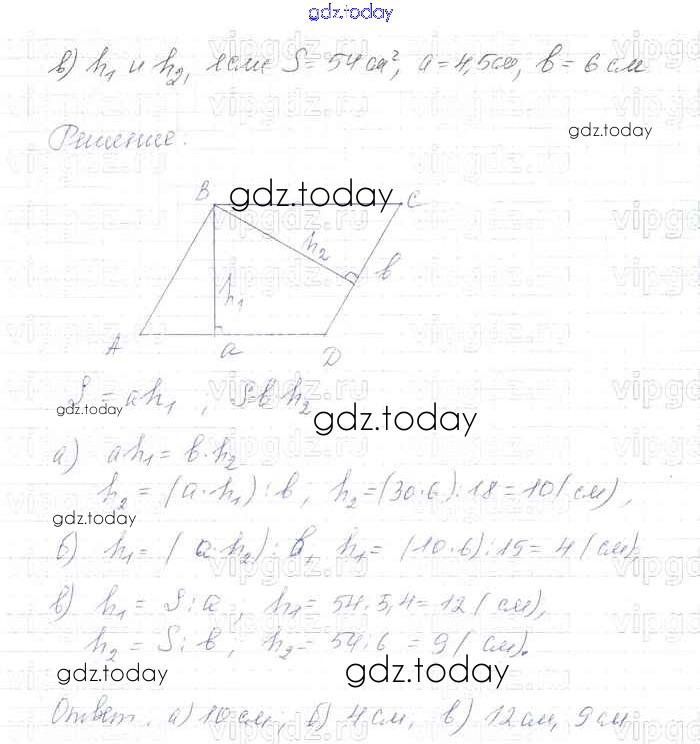 gdz.today
в) h₁ и h₂, если S = 54 см², a = 4,5 см, b = 6 см
Решение:
gdz.today
B C
gdz.today
h₂
b
h₁
A a D
S = ah₁ ; S = b·h₂
gdz.today gdz.today
а) a·h₁ = b·h₂
h₂ = (a·h₁) : b, h₂ = (30·6) : 18 = 10 (см),
gdz.today
б) h₁ = (a·h₂) : b, h₁ = (10·6) : 15 = 4 (см),
в) h₁ = S : a ; h₁ = 54·5,4 = 12 (см),
h₂ = S : b, h₂ = 54 : 6 = 9 (см).
gdz.today gdz.today
Ответ. а) 10 см; б) 4 см, в) 12 см, 9 см